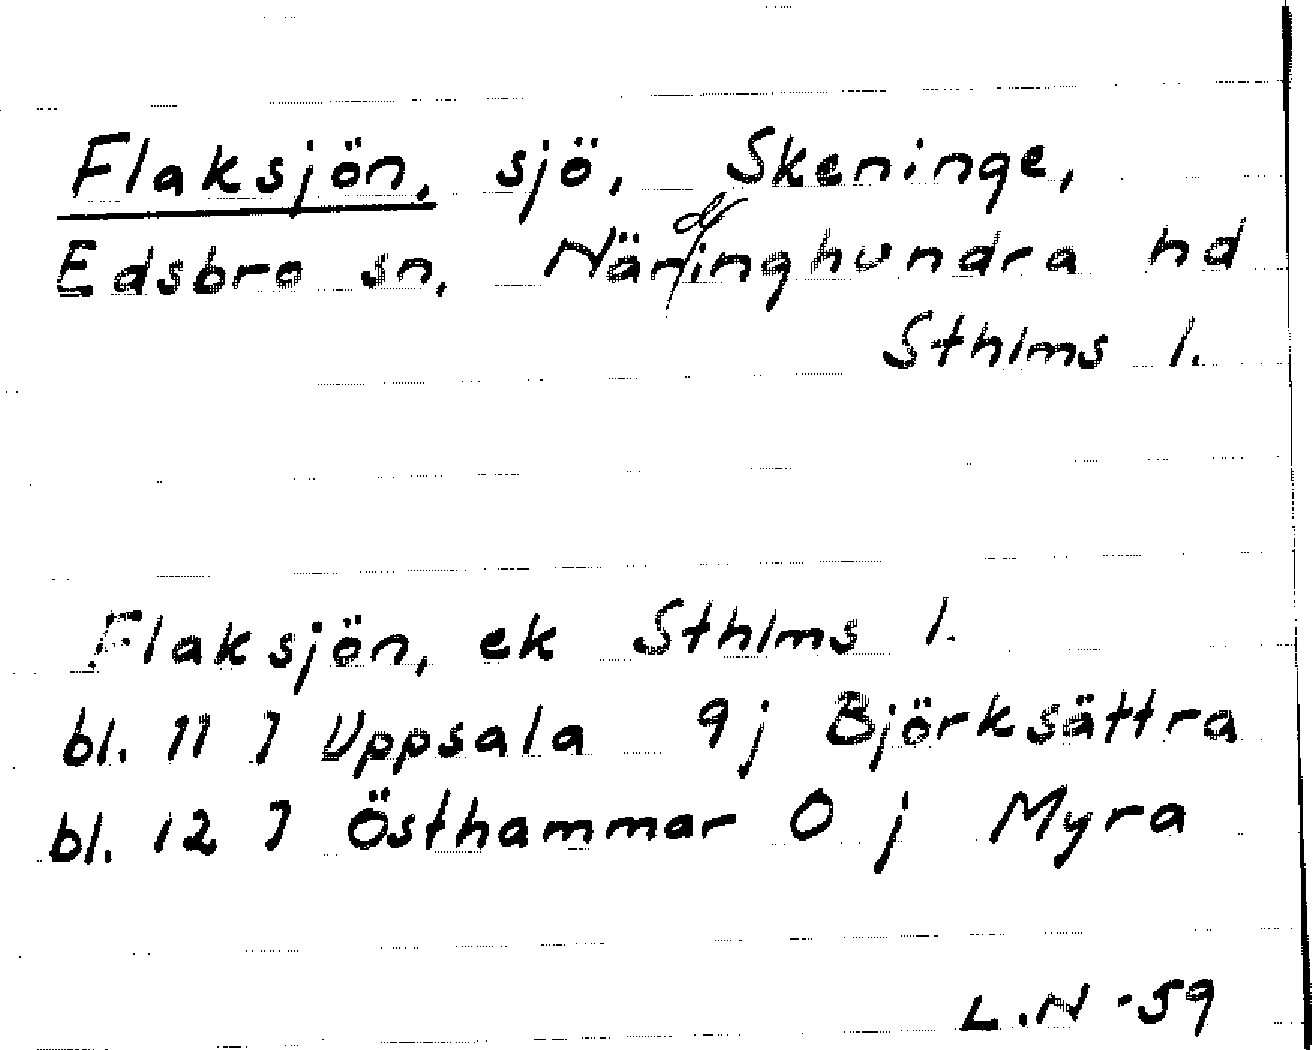 Flaksjön, sjö, Skeninge,
Edsbro sn. Närdinghundra hd
Sthlms l.
Flaksjön, ek Sthlms l.
bl. 11 I Uppsala 9j Björksättra
bl. 12 I Östhammar 0 j Myra
L.N -59